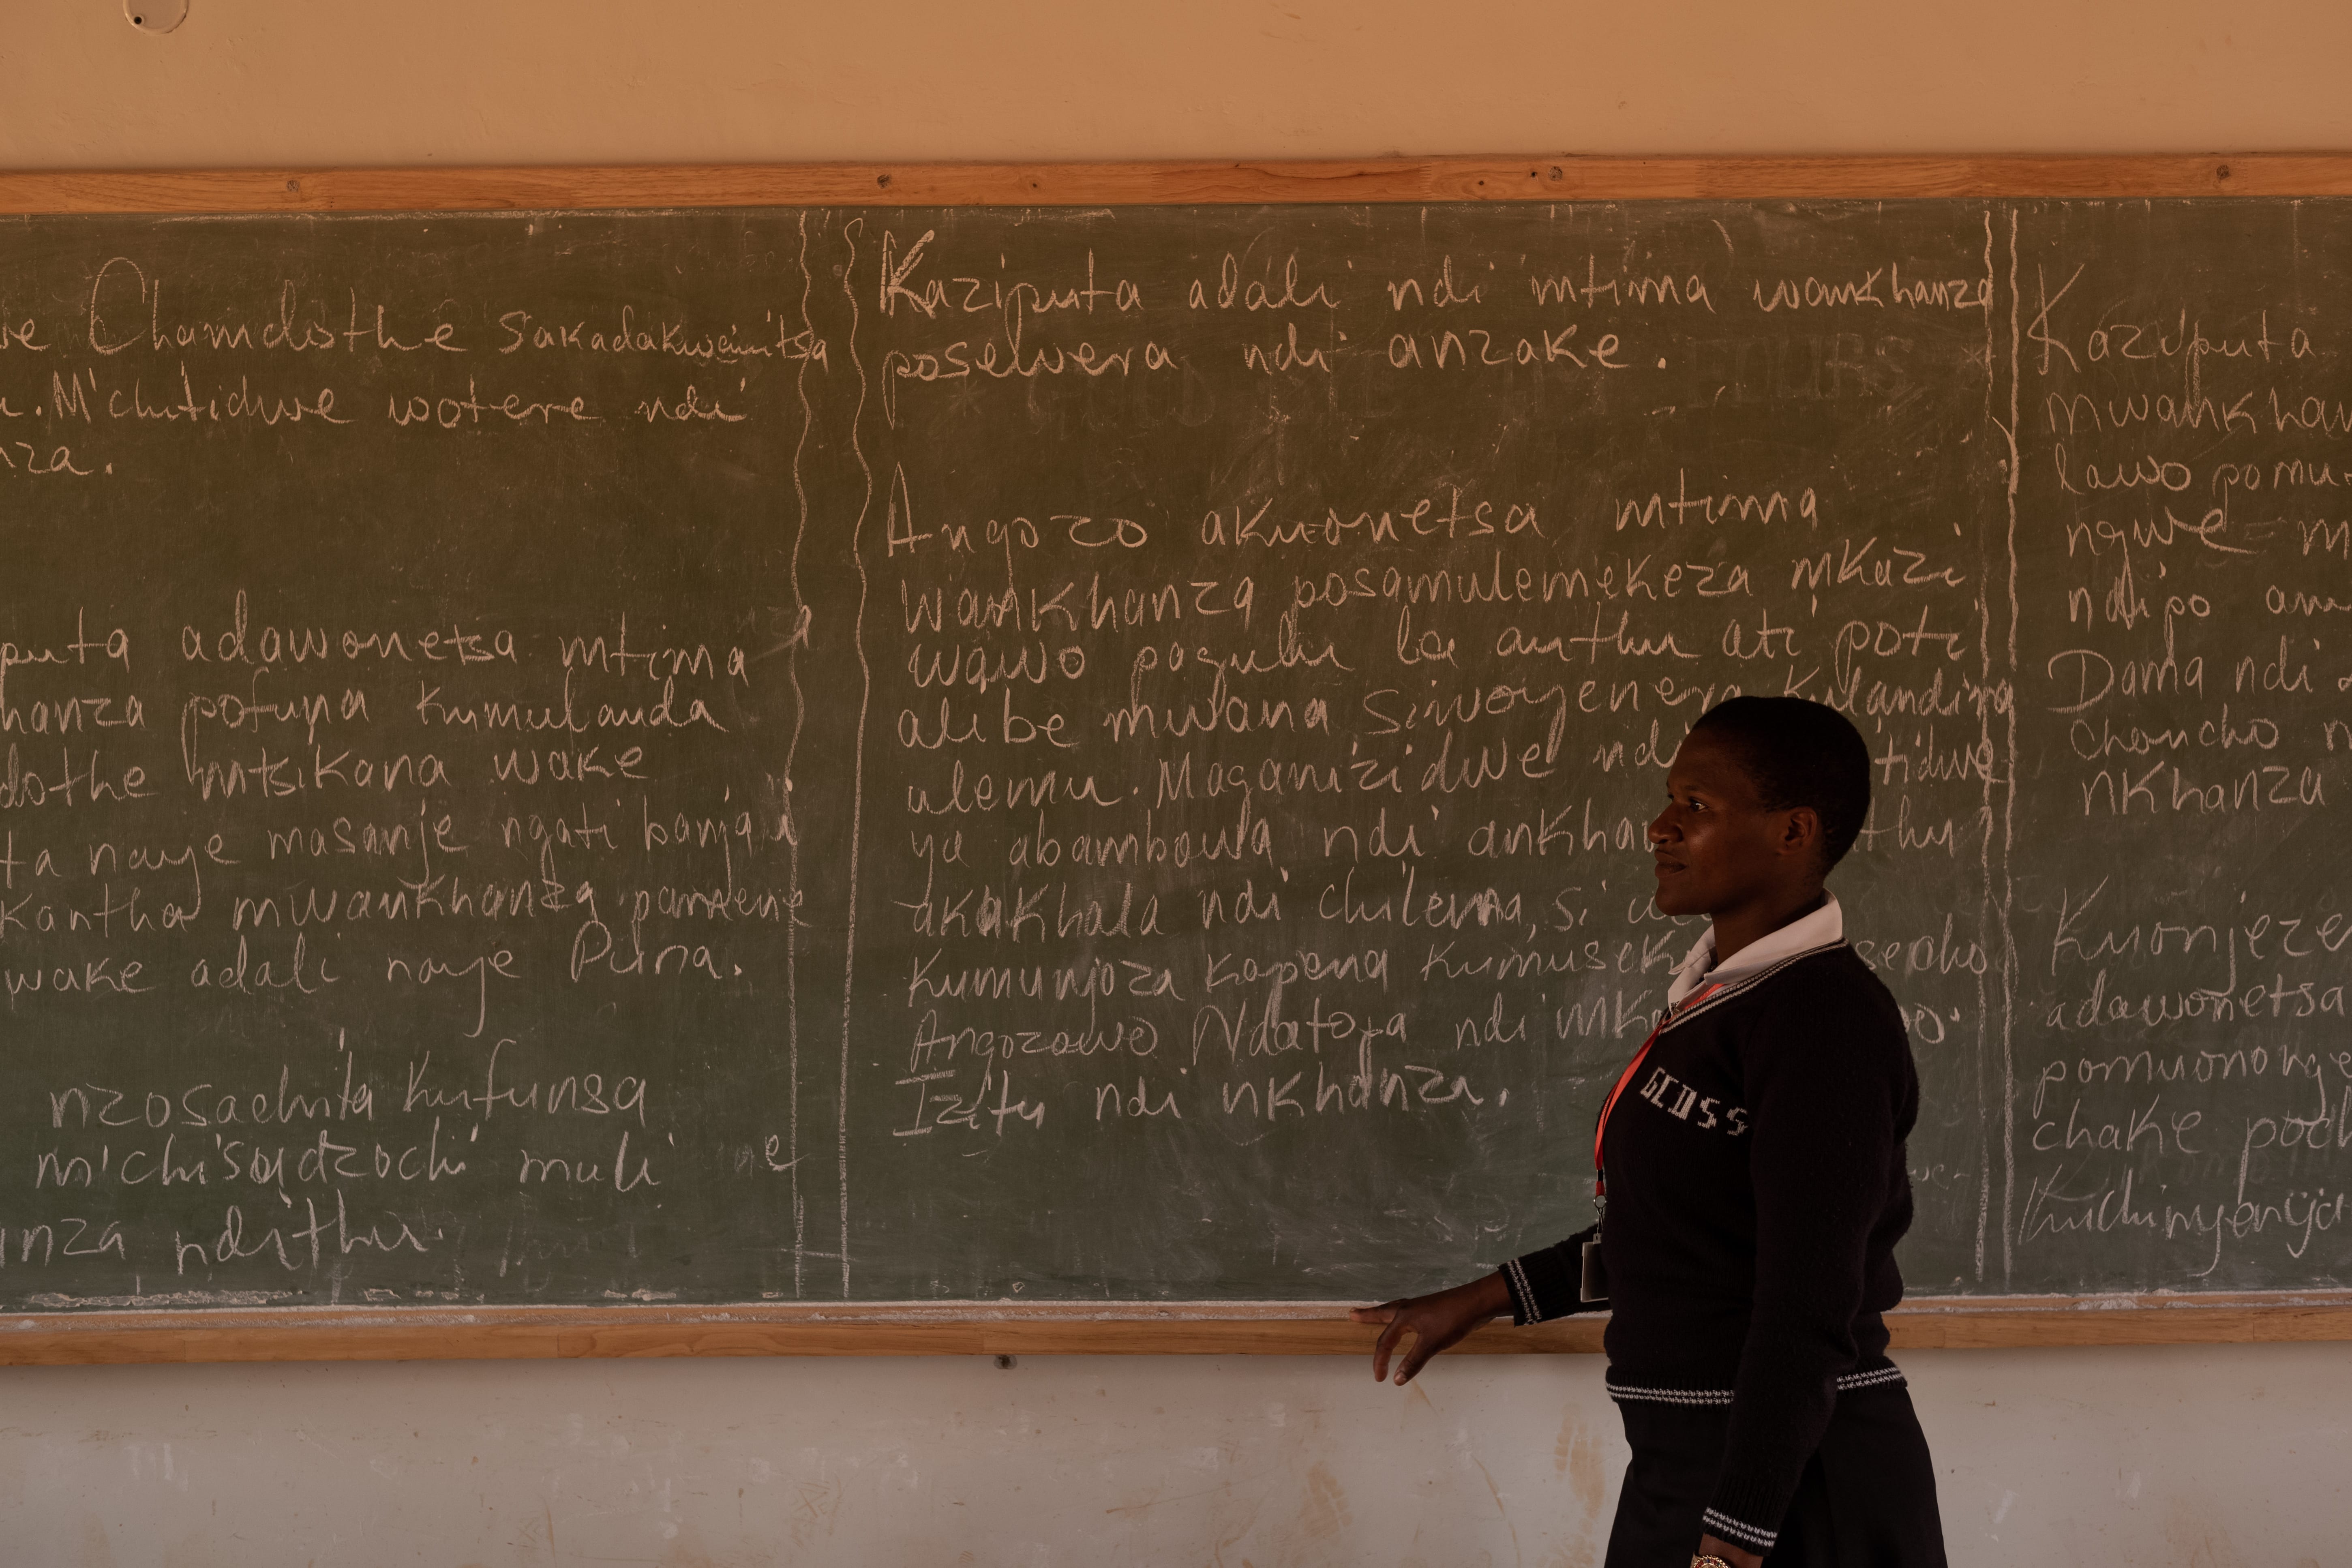 Chamdothe sakadakwanitsa
M'chitidwe wotere ndi
nza.
puta adawonetsa mtima
hanza pofuna kumulanda
dothe mtsikana wake
ta naye masanje ngati banja
kantha mwankhanza pamene
wake adali naye Puna.
nzosachita kufunsa
m'chisadzochi muli ne
nza ndithu.
Kaziputa adali ndi mtima wankhanza
poselvera ndi anzake.
Angozo akuonetsa mtima
wankhanza posamulemekeza mkazi
wawo pagulu la anthu ati poti
alibe mwana siwoyenera kulandira
ulemu. Maganizidwe ndi tidwe
ya abambowa ndi ankha thu
akakhala ndi chilema, si
kumunjoza kapena kumusek sepho
Angozowo Ndatopa ndi mk o.
Izitu ndi nkhanza.
GCDSS
Kaziputa
mwankhan
lawo pomu
ngwe m
ndipo am
Dama ndi
choncho n
nkhanza
Kuonjeze
adawonetsa
pomuononge
chake pod
kuchinyenja